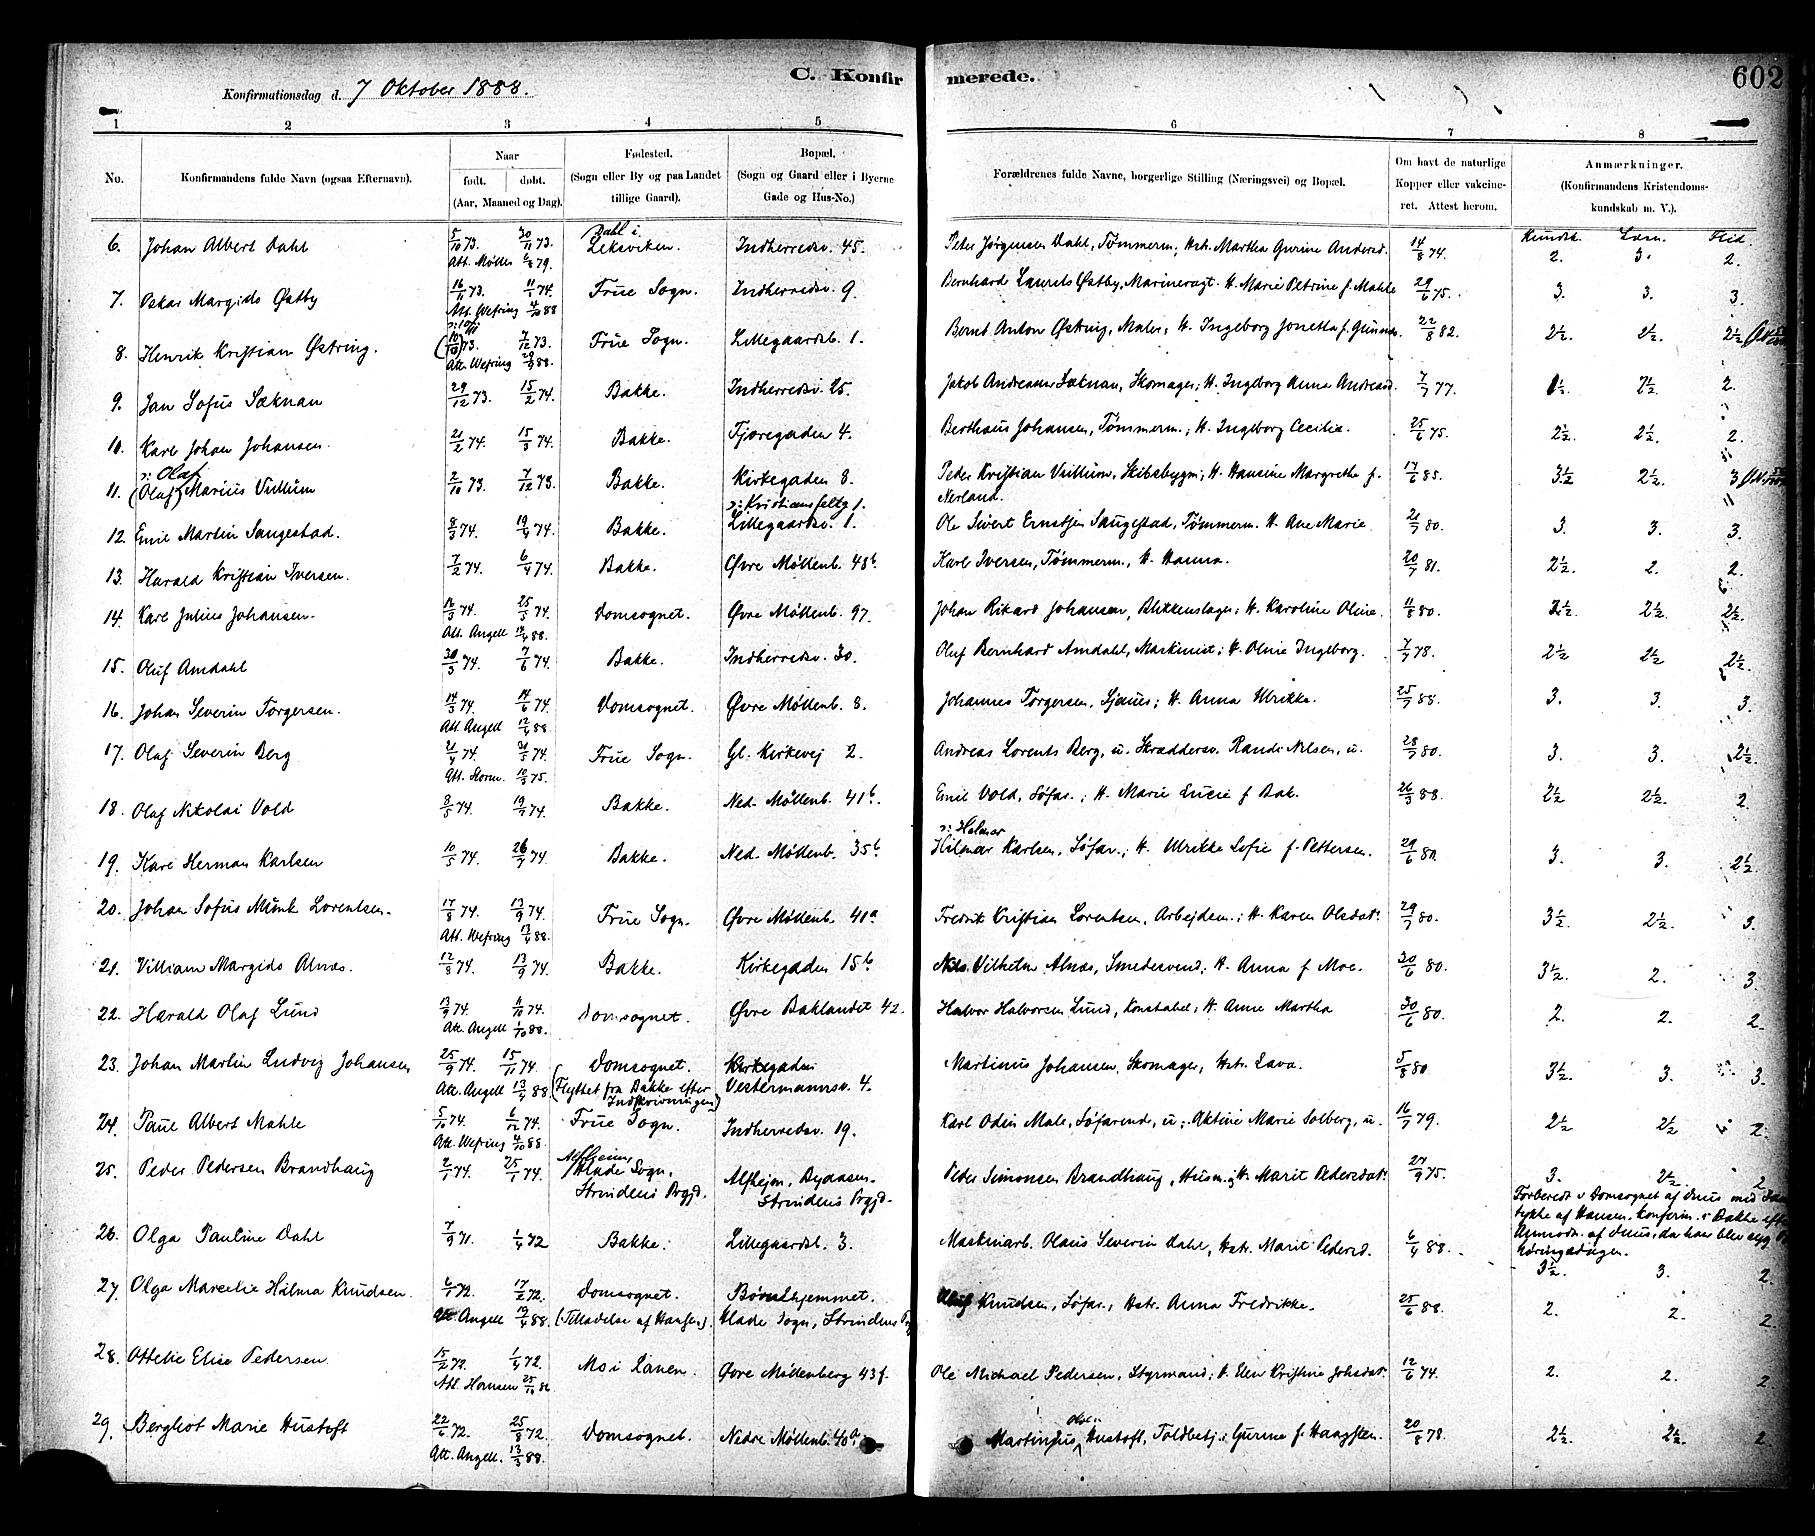 C. Konfirmerede.
602
Konfirmationsdag d. 7 Oktober 1888.
1 2 3 4 5 6 7 8
No. Konfirmandens fulde Navn (ogsaa Efternavn). Naar født. døbt. (Aar, Maaned og Dag). Fødested. (Sogn eller By og paa Landet tillige Gaard). Bopæl. (Sogn og Gaard eller i Byerne Gade og Hus-No.) Forældrenes fulde Navne, borgerlige Stilling (Næringsvei) og Bopæl. Om havt de naturlige Kopper eller vakcineret. Attest herom. Anmærkninger. (Konfirmandens Kristendomskundskab m. V.).
Kundsk. Læsn. Flid.
6. Johan Albert Dahl 5/10 73. 30/11 73. Dahl i Leksviken. Indherredsv. 45. Peter Jørgensen Dahl, Tømmerm., Hstr. Martha Gurine Andersd. 14/8 74. 2. 3. 2.
Att. Møller 6/8 79.
7. Oskar Margido Østby 16/11 73. 11/1 74. Frue Sogn. Indherredsv. 9. Bernhard Laurits Østby, Marinevagt. H. Marie Petrine f. Mahle 29/6 75. 3. 3. 3.
Att. Wefring 4/10 88
8. Henrik Kristian Østring. (10/10) 73. 7/12 73. Frue Sogn. Lillegaardsb. 1. Bernt Anton Østring, Maler; H. Ingeborg Jonetta f. 22/8 82. 2½. 2½. 2½
Att. Wefring 29/9 88.
9. Jan Sofus Sæknan 29/12 73. 15/2 74. Bakke. Indherredsv. 25. Jakob Andreassen Sæknan, Skomager; H. Ingeborg Anna Andreasd. 7/7 77. 1½. 2½. 2.
10. Karl Johan Johansen. 21/2 74. 15/3 74. Bakke. Fjæregaden 4. Berthaus Johansen, Tømmerm.; H. Ingeborg Cecilia. 25/6 75. 2½. 2½. 2.
ɔ: Olaf
11. (Oluf) Marius Vullum 2/10 73. 7/12 73. Bakke. Kirkegaden 8. Peder Kristian Vullum, Skibsbygm; H. Hansine Margrethe f. Nerland. 17/6 85. 3½ 2½. 3
ɔ: Kristiansfeltg 1.
12. Emil Martin Saugestad. 8/3 74. 19/4 74. Bakke. Lillegaardsv. 1. Ole Sivert Ernstsen Saugestad, Tømmerm. H. Ane Marie 21/7 80. 3. 3. 3.
13. Harald Kristian Iversen. 7/2 74. 6/4 74. Bakke. Øvre Møllenb. 48b. Karl Iversen, Tømmerm., H. Hanna. 20/7 81. 2½. 2. 2.
14. Karl Julius Johansen. 12/3 74. 25/5 74. Domsognet. Øvre Møllenb. 97. Johan Rikard Johansen, Blikkenslager; H. Karoline Oline. 11/8 80. 2½. 2½. 2½.
Att. Angell 12/4 88.
15. Oluf Amdahl 30/3 74. 7/6 74. Bakke. Indherredsv. 30. Oluf Bernhard Amdahl, Maskinist; H. Oline Ingeborg. 7/7 78. 2½ 2½ 2½.
16. Johan Severin Torgersen. 14/3 74. 14/6 74. Domsognet. Øvre Møllenb. 8. Johannes Torgersen, Sjauer; H. Anna Ulrikke. 25/7 88. 3. 3. 3.
Att. Angell 12/4 88.
17. Olaf Severin Berg 21/4 74. 21/5 74. Frue Sogn. Gl. Kirkevej 2. Andreas Lorents Berg, u. Skræddersv. Randi Nilsen, u. 28/7 80. 3. 3. 2½.
Att. Storm. 10/3 75.
18. Olaf Nikolai Vold 8/5 74. 19/7 74. Bakke. Ned. Møllenb. 41b. Emil Vold, Søfar.; H. Marie Lucie f Bak. 26/3 88. 2½ 2½. 2.
ɔ: Helmer
19. Karl Herman Karlsen 10/5 74. 26/7 74. Bakke. Ned. Møllenb. 35b. Hilmar Karlsen, Søfar.; H. Ulrikke Sofie f. Pettersen. 29/6 80. 3. 3. 2½.
20. Johan Sofus Munk Lorentsen. 17/8 74. 13/9 74. Frue Sogn. Øvre Møllenb. 41a. Fredrik Kristian Lorentsen, Arbejdsm.; H. Karen Olsdatr. 29/7 80. 3½. 2½. 3.
Att. Wefring 13/4 88.
21. Villiam Margido Alnæs. 12/8 74. 13/9 74. Bakke. Kirkegaden 15b. Nils Vilhelm Alnæs, Smedesvend; H. Anna f Moe. 20/6 80. 3½. 2. 3.
22. Harald Olaf Lund 13/9 74. 11/10 74. Domsognet. Øvre Baklandet 42. Halvor Halvorsen Lund, Konstabel; H. Anne Martha 30/6 80. 2. 2. 2.
Att. Angell 1/10 88.
23. Johan Martin Ludvig Johansen 25/9 74. 15/11 74. Domsognet. Kirkegaden Martinus Johansen, Skomager, Hstr. Lava. 5/8 80. 3½. 3. 3.
Att. Angell 13/4 88. (Flyttet fra Bakke efter Indskrivningen) Vestermannsv. 4.
24. Paul Albert Mahle 5/10 74. 6/12 74. Frue Sogn. Indherredsv. 19. Karl Odin Male, Søfarende, u; Aktine Marie Solberg, u. 16/7 79. 2½ 2½ 2.
Att. Wefring 4/10 88.
25. Peder Pedersen Brandhaug 2/1 74. 25/1 74. Hlade Sogn, Strindens Prgjd. Alfhejm, Byaasen. Strindens Prgjd. Peder Simonsen Brandhaug, Husm. og H. Marit Pedersdatr 27/9 75. 3. 2½. 2.
Forberedt i Domsognet af
26. Olga Pauline Dahl 7/9 71. 1/4 72 Bakke. Lillegaardsb. 3. Maskinarb. Olaus Severin Dahl, Hstr. Marit Pedersd. 6/4 88. 3½. 3. 2.
27. Olga Marcelie Hilma Knudsen. 6/1 72. 17/2 72. Domsognet. Børnehjemmet. Knudsen, Søfar., Hstr. Anna Fredrikke. 25/6 88. 2. 2. 2.
Att. Angell 12/4 88. (Tilladelse af Hansen). Hlade Sogn, Strindens
28. Ottelie Elise Pedersen. 15/2 72. 1/4 72. Mo i Ranen. Øvre Møllenberg 43f. Ole Michael Pedersen, Styrmand; H. Elen Kristine Johsdat. 12/6 74. 2. 2. 2.
Att. Hansen 25/10 86
29. Bergliot Marie Hustoft 22/6 72. 25/8 72. Domsognet. Nedre Møllenb. 40a. Martinius Hustoft, Toldbetj.; Gurine f. Haagsten. 20/8 78. 2½. 2½. 2.
Att. Angell. 13/3 88.